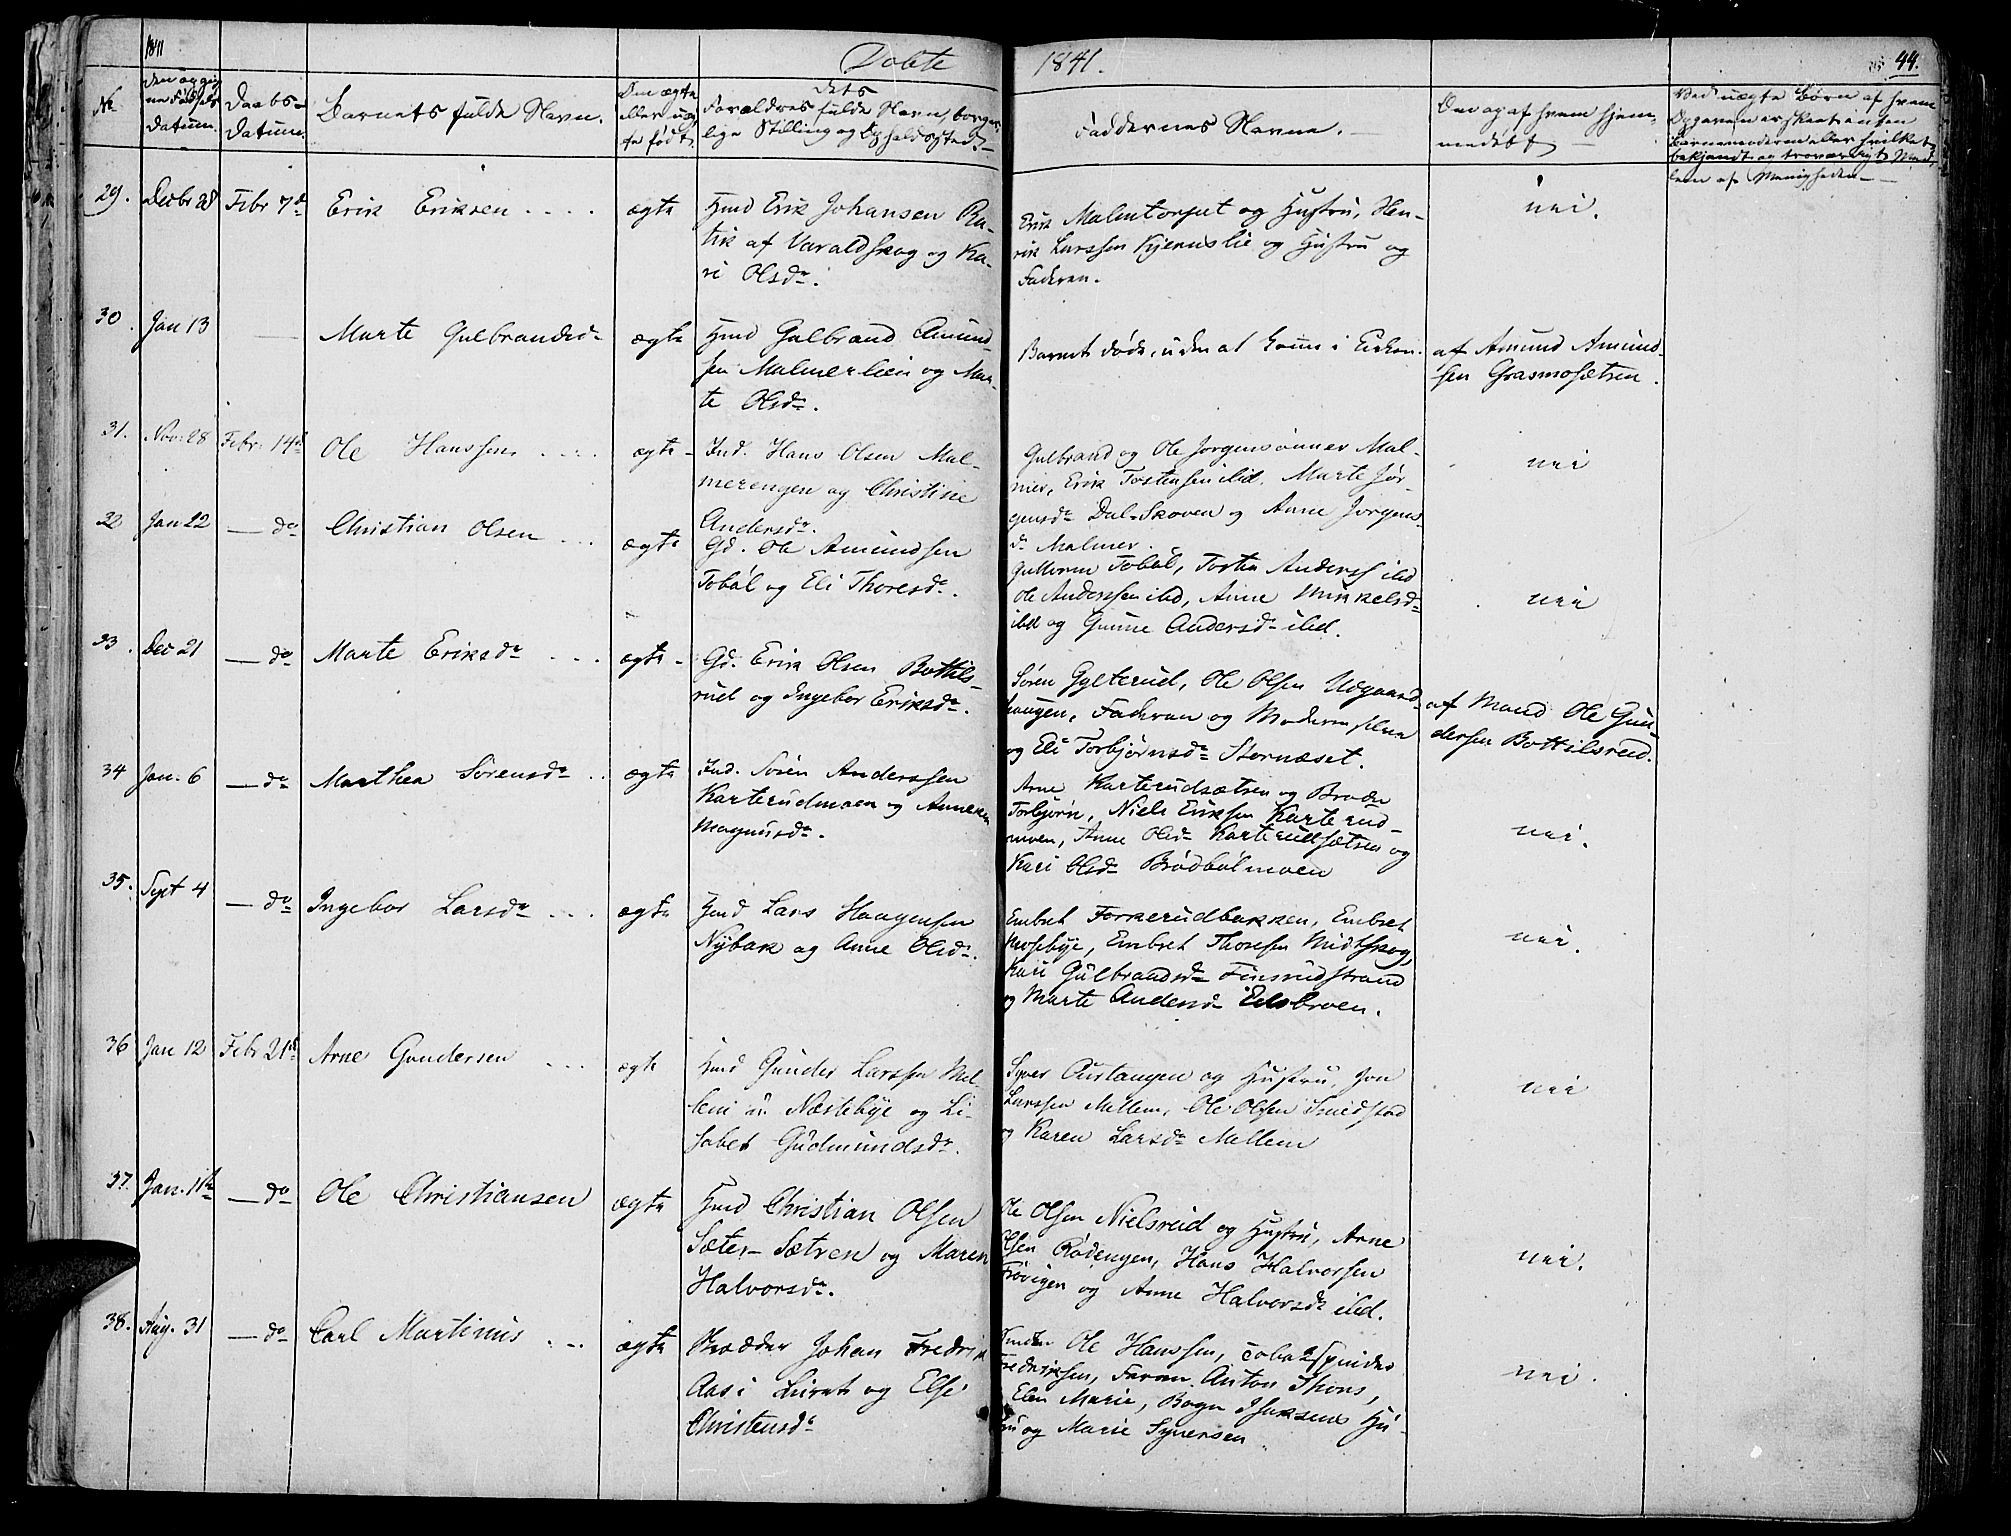 1841
Døbte
1841.
44.
No
Den opgivne Fødsels Datum.
Daabs-Datum.
Barnets fulde Navn.
Om ægte eller uægte født.
Forældres fulde Navn, borgerlige Stilling og Opholdssted.
Faddernes Navne.
Om og af hvem hjemmedøbt
29. Decbr 28 Febr 7de Erik Eriksen ægte
Hmd Erik Johansen Ra-
tik af Varaldskog og Ka-
ri Olsdr.
Erik Malmtorpet og Hustru, Hen-
rik Larssen Kjerneslie og Hustru og
Faderen.
nei.
30. Jan 13 — Marte Gulbrandsd ægte
Hmd Gulbrand Amund-
sen Malmerlien og Mar-
te Olsdr.
Barnet døde, uden at komme i Kirken.
af Amund Amund-
sen Grasmosætren.
31. Nov: 28 Febr: 14de Ole Hanssen ægte
Ind. Hans Olsen Mal-
merengen og Christine
Andersdr.
Gulbrand og Ole Jørgensønner Mal-
mer, Erik Tostensen ibd. Marte Jør-
gensdr Dal-Skoven og Anne Jørgens-
dr Malmer.
nei
32 Jan 22 — do Christian Olsen ægte
Gd. Ole Amundsen
Tobøl og Eli Thoresdr.
Guttorm Tobøl, Tosten Anderss ibd
Ole Anderssen ibd, Anne Mikkelsd
ibd og Gunne Andersdr ibd.
nei
33. Dec 21 — do Marte Eriksdr ægte
Gd. Erik Olsen Bottils-
rud og Ingebor Eriksdr.
Søren Gylterud, Ole Olsen Udgaard-
haugen, Faderen og
og Eli Torbjørnsdr Stornæset.
af Mand Ole Gun-
dersen Bottilsrud.
34 Jan. 6 — do Marthea Sørensdr ægte
Ind. Søren Anderssen
Karterudmoen og Anneken
Magnusdr.
Arne Karterudsætren og Broder
Torbjørn, Niels Eriksen Karterud-
moen, Anne Olsdr Karterudsætren og
Kari Olsdr Brødbølmoen
nei.
35. Sept 4 — do Ingebor Larsdr ægte
Hmd Lars Haagensen
Nybak og Anne Olsdr.
Embret Forkerudbakken, Embret
Mosebye, Embret Thoresen Midtskog,
Kari Gulbrandsdr Finsrudstrand
og Marte Andersdr Edsbroen.
nei.
36 Jan 12 Febr 21de Arne Gundersen ægte
Hmd Gunder Larssen Mel-
lem u. Næstebye og Li-
sabet Gudmundsdr.
Syver Austangen og Hustru, Jon
Larssen Mellem, Ole Olsen Smedstad
og Karen Larsdr Mellem
nei
37. Jan. 11te — do Ole Christiansen ægte
Hmd Christian Olsen
Sæter-Sætren og Maren
Halvorsdr.
Ole Olsen Nielsrud og Hustru, Arne
Olsen Rødengen, Hans Halvorsen
Frøvigen og Anne Halvorsdr ibd.
nei.
38. Aug. 31 — do Carl Martinus ægte
Skrædder Johan Fredrik
Aas i Luret og Else
Christensdr
Ole Hanssen, Tobakspinder
Fredriksen, Anton Skons,
Elen Marie, Isaksens Hu-
og Marie Syversen
nei.